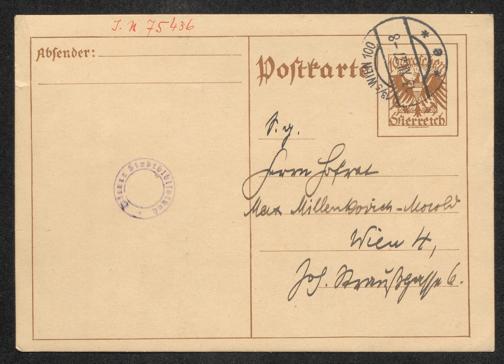 J. N 75436
Absender:
Postkarte
Österreich
WIEN 100
S. g.
Herrn Hofrat
Max Millenkovich-Morold
Wien 4,
Joh. Straußgasse 6.